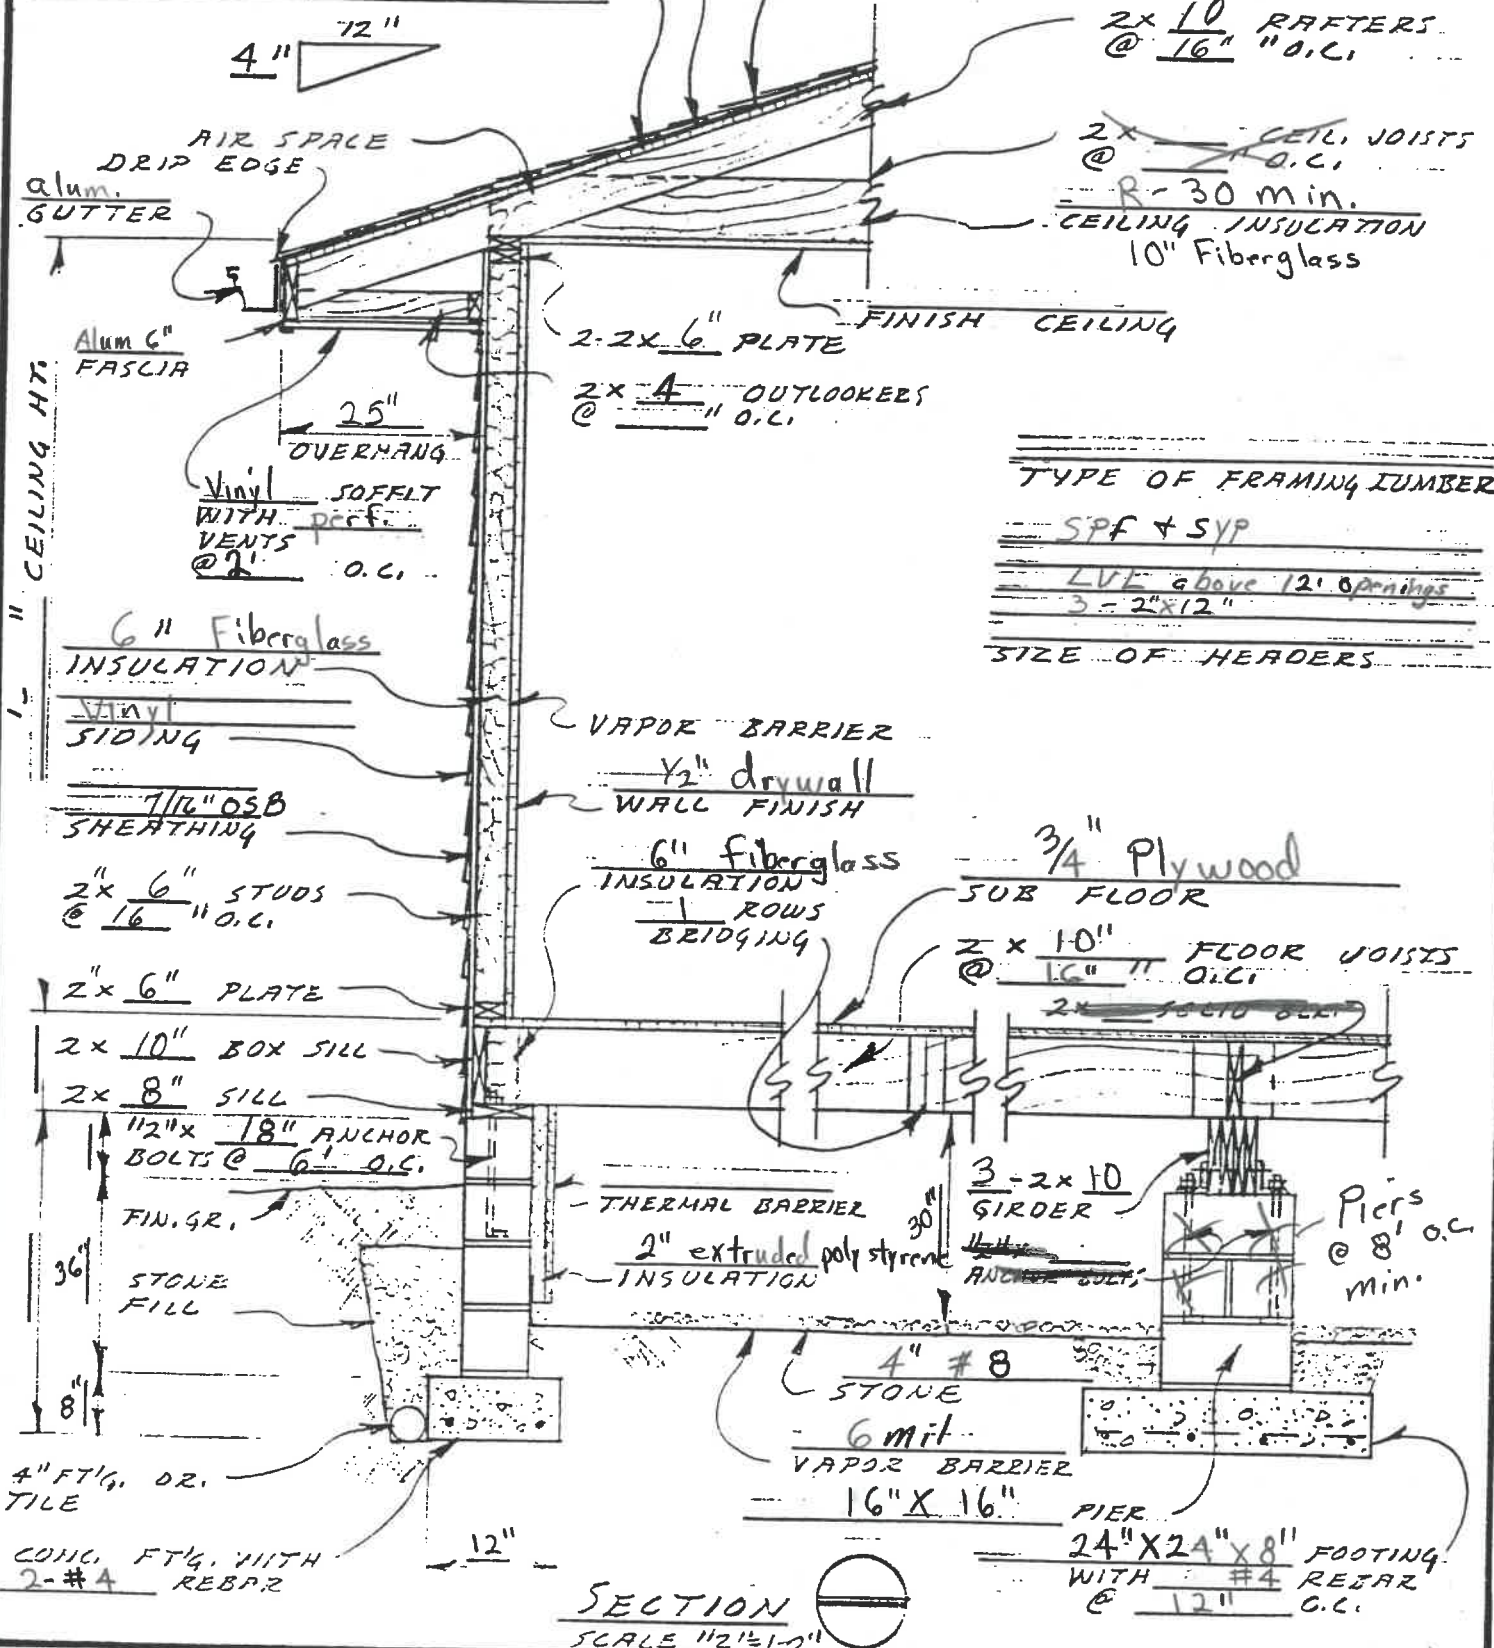 12"
4"
2x 10 RAFTERS
@ 16" "O.C.
AIR SPACE
DRIP EDGE
alum.
GUTTER
2x CEIL. JOISTS
@ " O.C.
R-30 min.
CEILING INSULATION
10" Fiberglass
5
Alum 6"
FASCIA
2-2x 6" PLATE
FINISH CEILING
2x 4 OUTLOOKERS
@ " O.C.
25"
OVERHANG
Vinyl SOFFIT
WITH perf.
VENTS
@ 2' O.C.
' - " CEILING HT.
TYPE OF FRAMING LUMBER
SPF & SYP
LVL above 12' openings
3 - 2"x12"
SIZE OF HEADERS
6" Fiberglass
INSULATION
Vinyl
SIDING
7/16" OSB
SHEATHING
2"x 6" STUDS
@ 16 "O.C.
VAPOR BARRIER
1/2" drywall
WALL FINISH
6" fiberglass
INSULATION
1 ROWS
BRIDGING
3/4" Plywood
SUB FLOOR
2 x 10" FLOOR JOISTS
@ 16" " O.C.
2x SOLID
2"x 6" PLATE
2x 10" BOX SILL
2x 8" SILL
1/2"x 18" ANCHOR
BOLTS @ 6' O.C.
FIN. GR.
THERMAL BARRIER
2" extruded polystyrene
INSULATION
30"
3 - 2x 10
GIRDER
ANCHOR BOLTS
Piers
@ 8' O.C.
min.
36"
STONE
FILL
8"
4" #8
STONE
6 mil
VAPOR BARRIER
16" X 16" PIER
4" FT'G. DR.
TILE
CONC. FT'G. WITH
2-#4 REBAR
12"
24"X24"X8" FOOTING
WITH #4 REBAR
@ 12" O.C.
SECTION
SCALE 1/2"=1'-0"